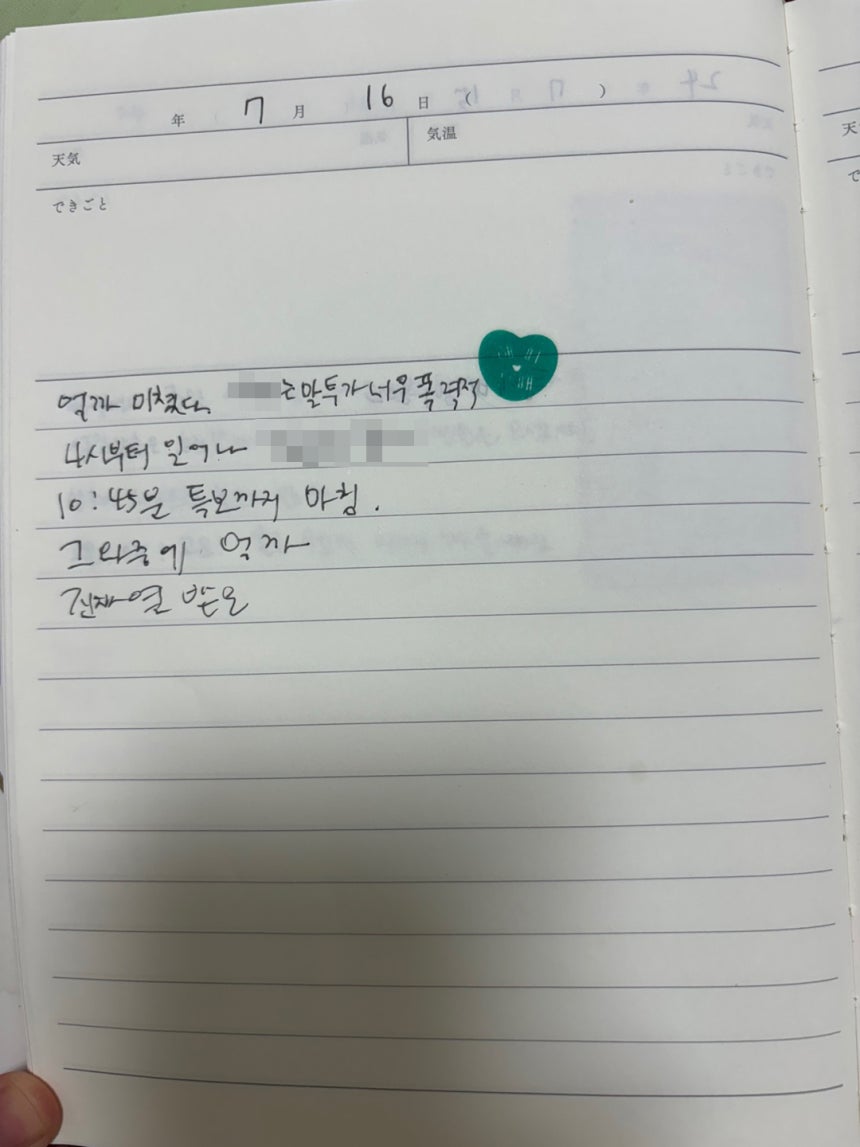 年 7 月 16 日 ( )
天気 気温
できごと
억까 미쳤다. 는 말투가 너무 폭력적
4시부터 일어나
10:45분 특보까지 마침.
그 와중에 억까
진짜 열 받으